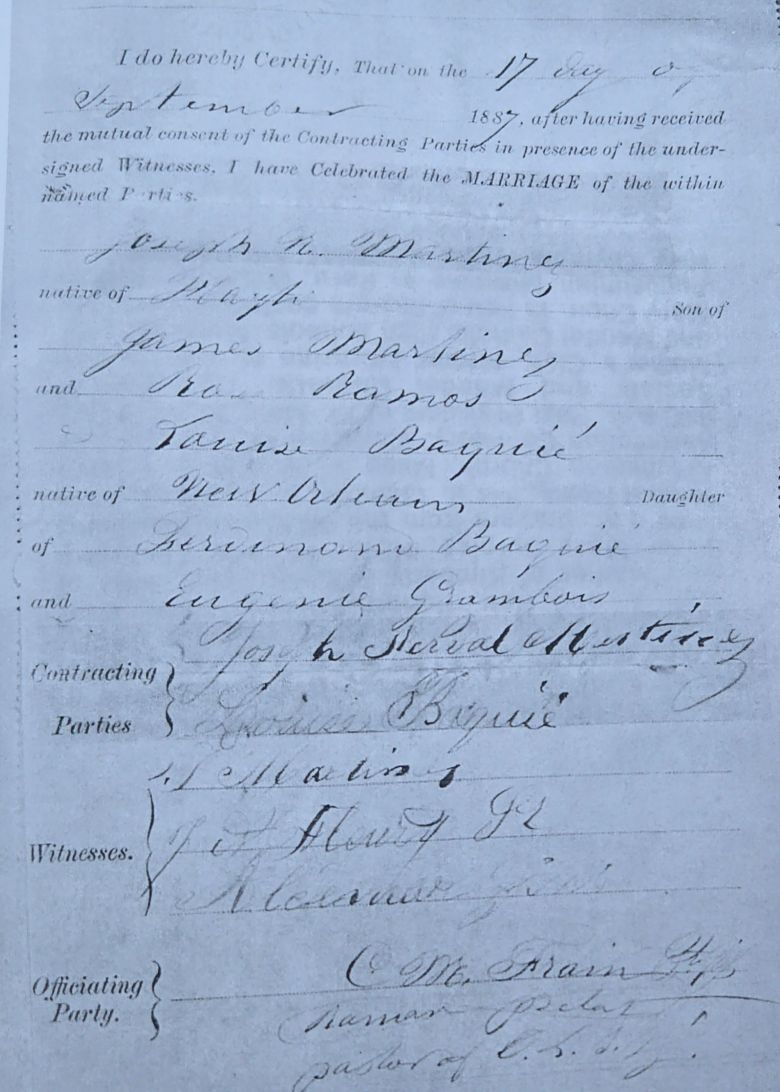 I do hereby Certify, That on the 17 day of
September 1887, after having received
the mutual consent of the Contracting Parties in presence of the under-
signed Witnesses, I have Celebrated the MARRIAGE of the within
named Parties.
Joseph N. Martinez
native of Hayti Son of
James Martinez
and Rosa Ramos
Louise Baquié
native of New Orleans Daughter
of Ferdinand Baquié
and Eugenie Grambois
Joseph Nerval Martinez
Contracting
Parties Louise Baquié
Martinez
Witnesses. Fleury Jr
Officiating
Party. C M. Frain
Roman
pastor of